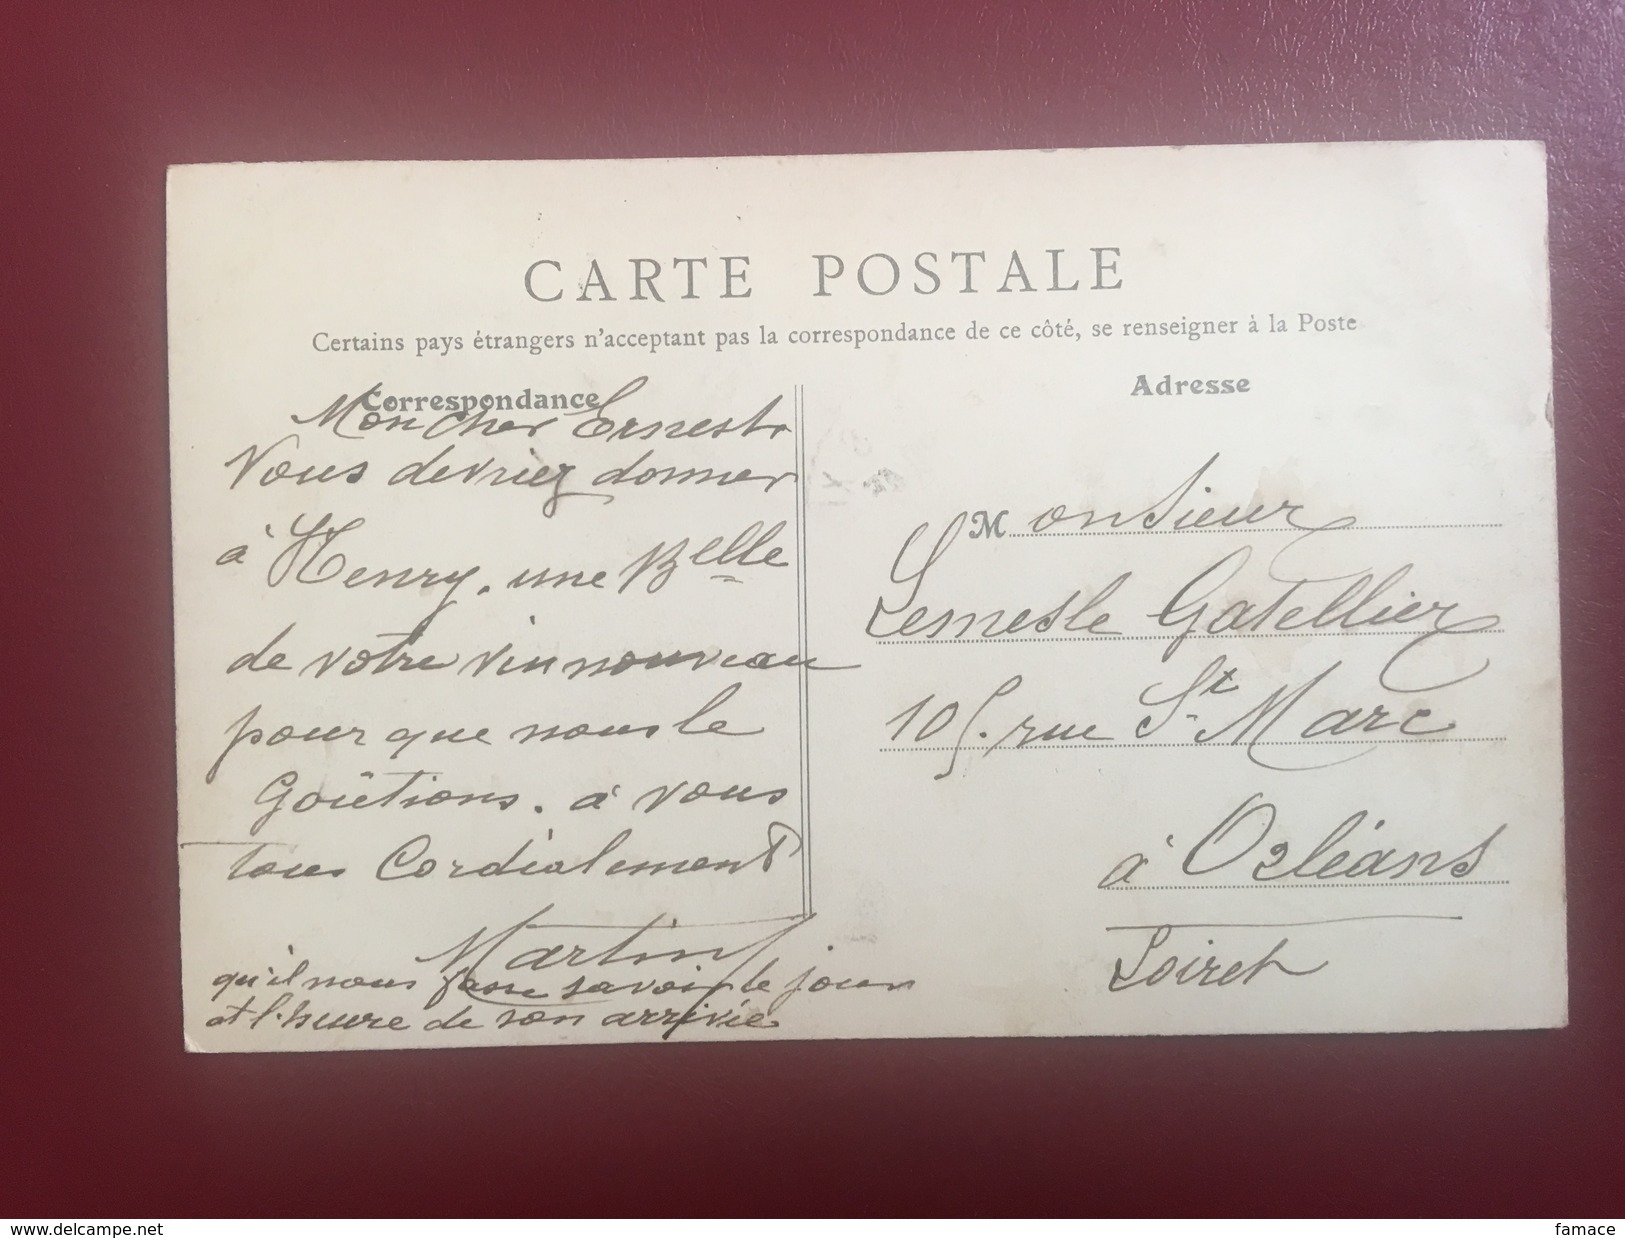 CARTE POSTALE
Certains pays étrangers n'acceptant pas la correspondance de ce côté, se renseigner à la Poste
Correspondance
Mon cher Ernest
Vous devriez donner
à Henry. une Belle
de votre vin nouveau
pour que nous le
Goûtions. à vous
tous Cordialement
Martin
qu'il nous fasse savoir le jour
et l'heure de son arrivée
Adresse
Monsieur
Lemesle Gatellier
105. rue St Marc
à Orléans
Loiret
delcampe.net
famace